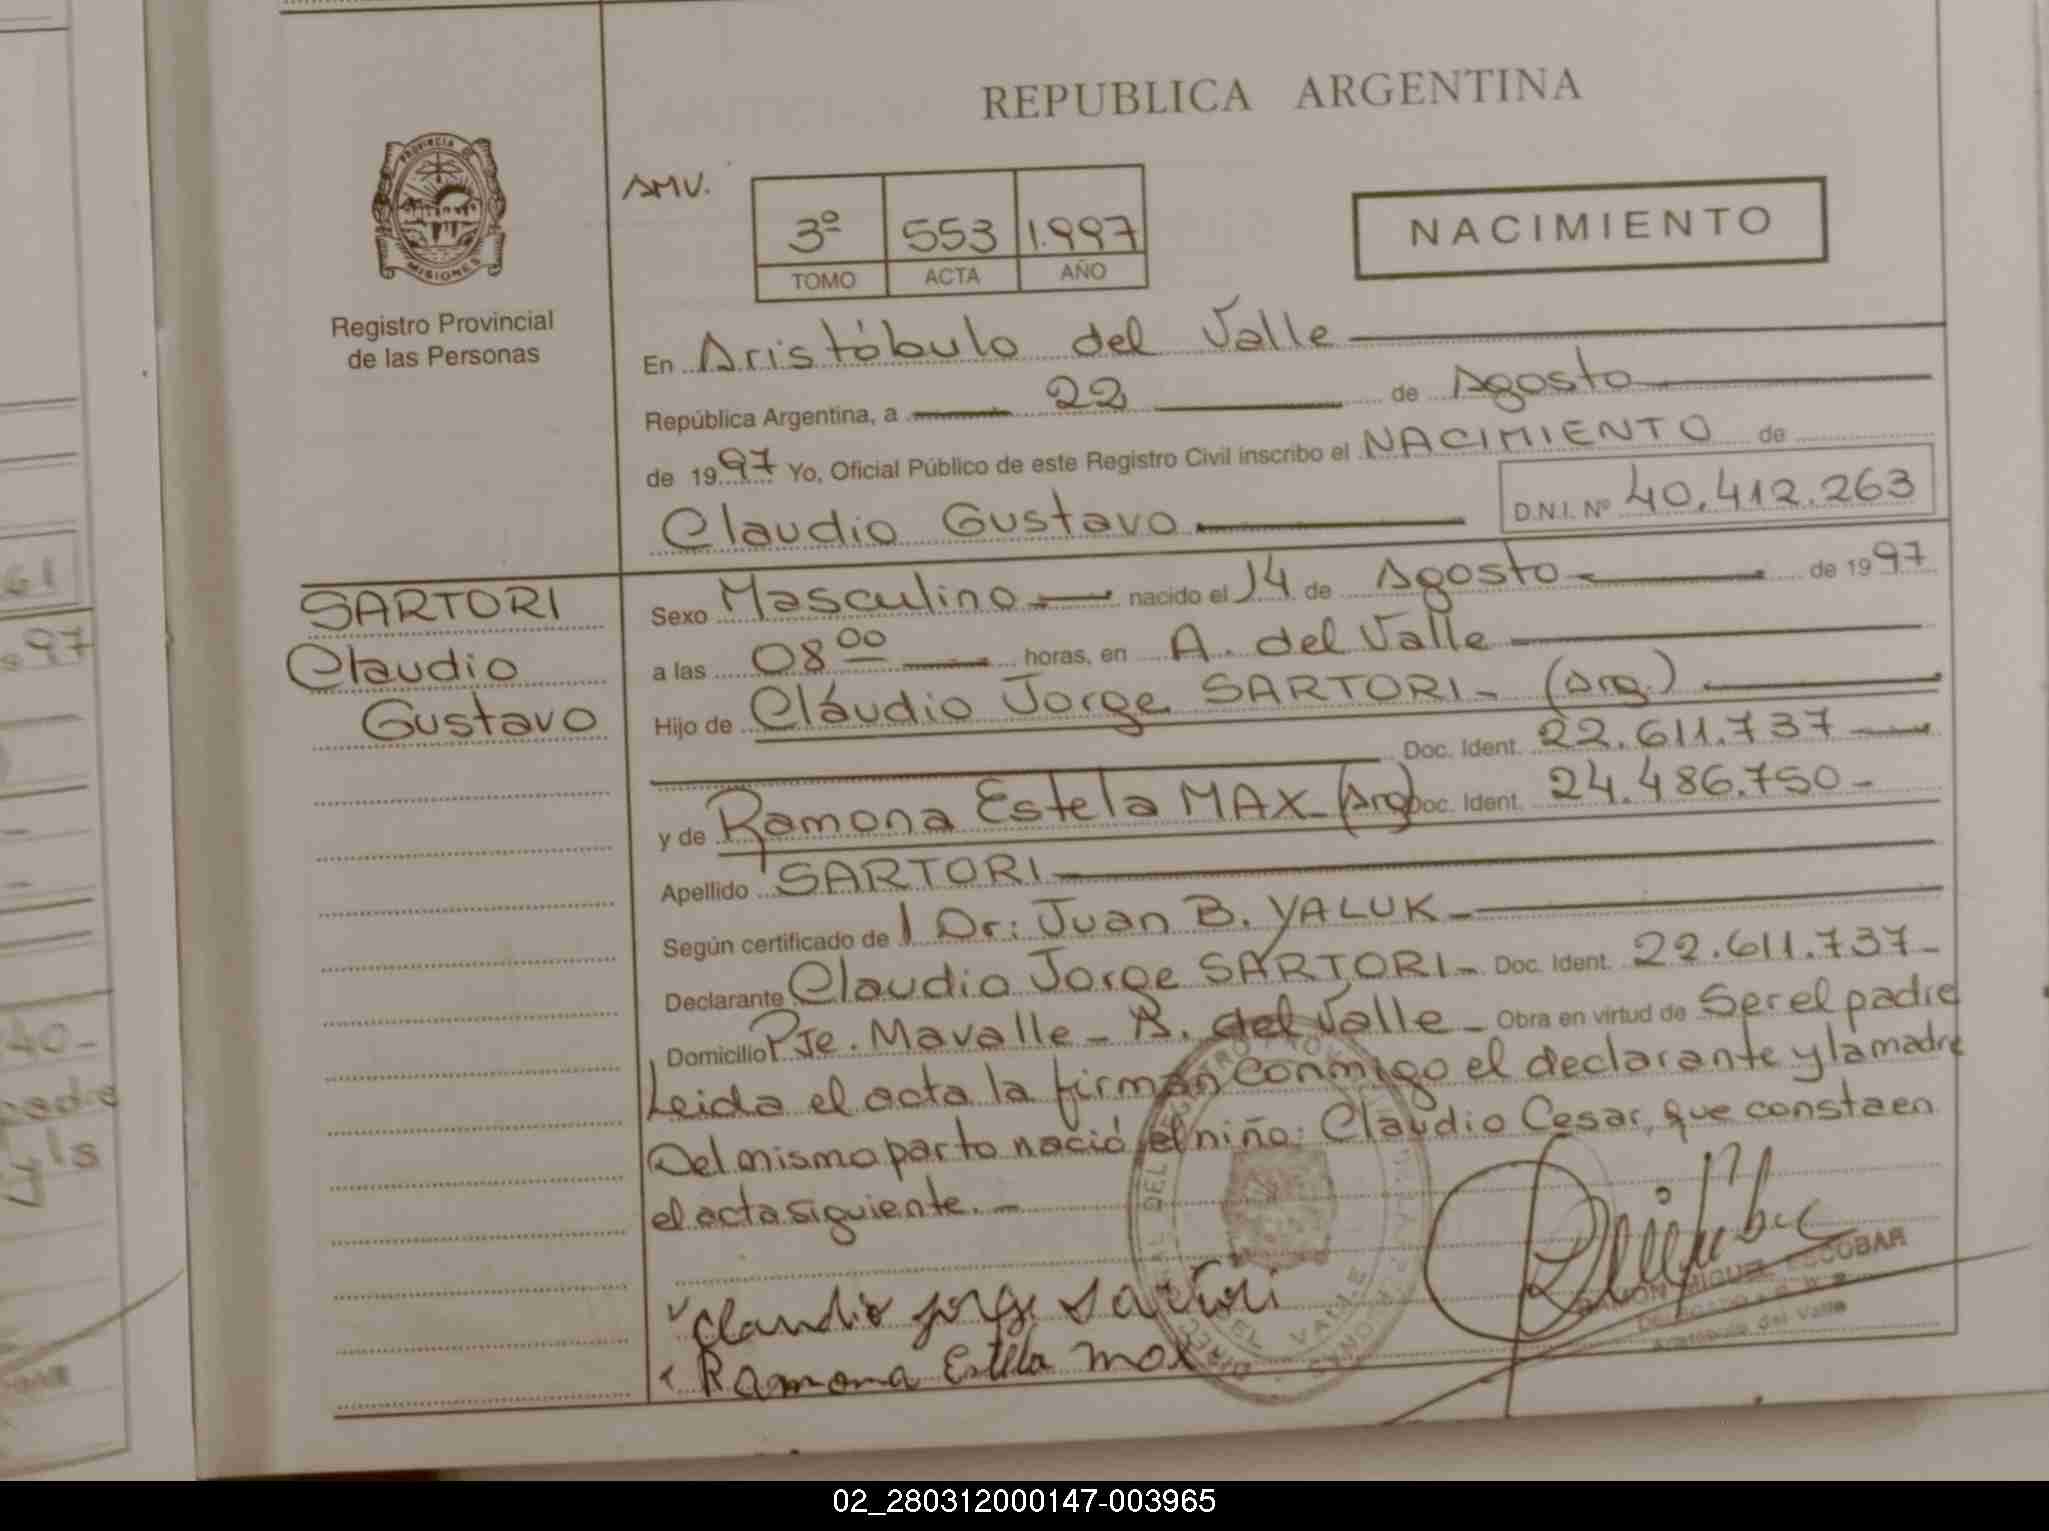 REPUBLICA ARGENTINA
PROVINCIA DE
MISIONES
Registro Provincial
de las Personas
AMV.
3º 553 1.997
TOMO ACTA AÑO
NACIMIENTO
En Aristóbulo del Valle
República Argentina, a 22 de Agosto
de 1997 Yo, Oficial Público de este Registro Civil inscribo el NACIMIENTO de
Claudio Gustavo D.N.I. Nº 40.412.263
SARTORI
Claudio
Gustavo
Sexo Masculino nacido el 14 de Agosto de 1997
a las 08 00 horas, en A. del Valle
Hijo de Cláudio Jorge SARTORI - (Arg.)
Doc. Ident. 22.611.737
y de Ramona Estela MAX - (Arg) Doc. Ident. 24.486.750 -
Apellido SARTORI
Según certificado de Dr: Juan B. YALUK -
Declarante Claudio Jorge SARTORI - Doc. Ident. 22.611.737 -
Domicilio Pje. Mavalle - A. del Valle - Obra en virtud de Ser el padre
Leida el acta la firman conmigo el declarante y la madre
Del mismo parto nació el niño: Claudio Cesar, que consta en
el acta siguiente. -
Claudio Jorge Sartori
Ramona Estela Max
RAMON MIGUEL ESCOBAR
Aristóbulo del Valle
DEL VALLE
61
97
40 -
padre
02_280312000147-003965